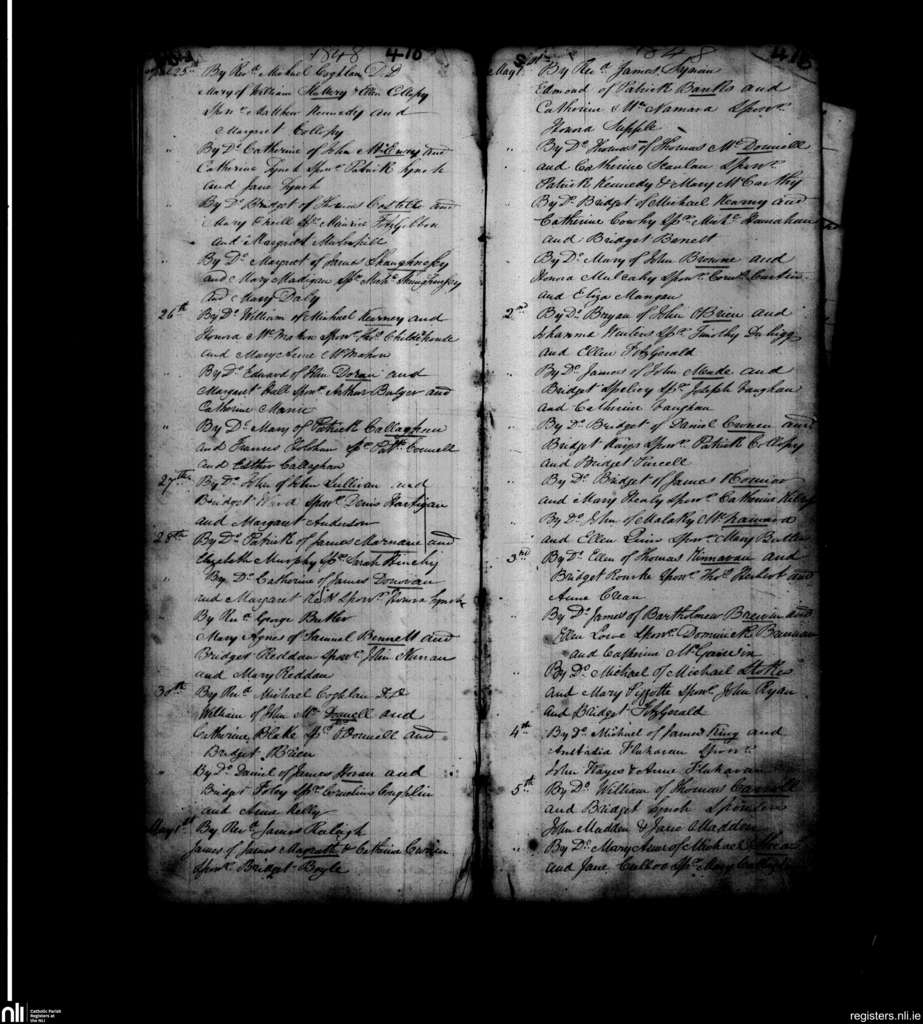 1848 416
April 25th By Revd. Michael Coghlan D.D
Mary of William Slattery & Ellen Collopy
Sponr. Matthew Kennedy and
Margaret Collopy
" By Do. Catherine of John and
Catherine Lynch Sponr. Patrick Lynch
and Jane Lynch
" By Do. Bridget of Thomas Costello and
Mary Sprs. Maurice FitzGibbon
and Margaret
" By Do. Margret of James Shaughnessy
and Mary Madigan Sprs. Michl. Shaughnessy
and Mary Daly
26th By Do. William of Michael Kearney and
Honora McMahon Sponr. Thos.
and Mary Anne McMahon
" By Do. Edward of John Doran and
Margaret Hall Sponr. Arthur Bulger and
Catherine
" By Do. Mary of Patrick Callaghan
and Frances Sprs. Patk. Connell
and Esther Callaghan
27th By Do. John of John Sullivan and
Bridget Sponr. Denis Hartigan
and Margaret Anderson
28th By Do. Patrick of James Marnane and
Elizabeth Murphy Sprs. Sarah
" By Do. Catherine of James Donovan
and Margaret Sponr. Honora Lynch
" By Revd. George Butler
Mary Agnes of Samuel Bennett and
Bridget Reddan Sponr. John
and Mary Reddan
30th By Revd. Michael Coghlan D.D
William of John Mc Donnell and
Catherine Blake Spr. ODonnell and
Bridget OBrien
" By Do. Daniel of James Horan and
Bridget Foley Sprs. Cornelius Coughlin
and Anne Kelly
May 1st By Revd. James Raleigh
James of James Magrath & Catherine
Sponr. Bridget Boyle
1848 416
May 1 By Revd. James
Edmond of Patrick and
Catherine McNamara Sponr.
Honora Supple
" By Do. Thomas of Thomas McDonnell
and Catherine Scanlan Sponr.
Patrick Kennedy & Mary McCarthy
" By Do. Bridget of Michael Kearny and
Catherine Sprs. Michl. Hanrahan
and Bridget Bennett
" By Do. Mary of John Browne and
Honora Mulcahy Sponr.
and Eliza Mangan
2nd By Do. Bryan of John OBrien and
Johanna Sprs. Timothy
and Ellen FitzGerald
" By Do. James of John Meade and
Bridget Sprs. Joseph Vaughan
and Catherine Vaughan
" By Do. Bridget of Daniel and
Bridget Hayes Sponr. Patrick Collopy
and Bridget Purcell
" By Do. Bridget of James
and Mary Healy Sponr. Catherine
" By Do. John of Malaky McNamara
and Ellen Quin Sponr. Mary Butler
3rd By Do. Ellen of Thomas Kinnavan and
Bridget Rourke Sponr. Thos. Herbert and
Anne Crean
" By Do. James of Bartholmew and
Ellen Lowe Sponr. Dominick
and Catherine
" By Do. Michael of Michael Stokes
and Mary Sponr. John Ryan
and Bridget FitzGerald
4th By Do. Michael of James King and
Anstadia Flahavan Sponr.
John Hayes & Anne Flahavan
5th By Do. William of Thomas Carroll
and Bridget Lynch Sponsors
John Madden & Jane Madden
" By Do. Mary Anne of Michael
and Jane Sprs. Mary
nli
Catholic Parish
Registers at
the NLI
registers.nli.ie